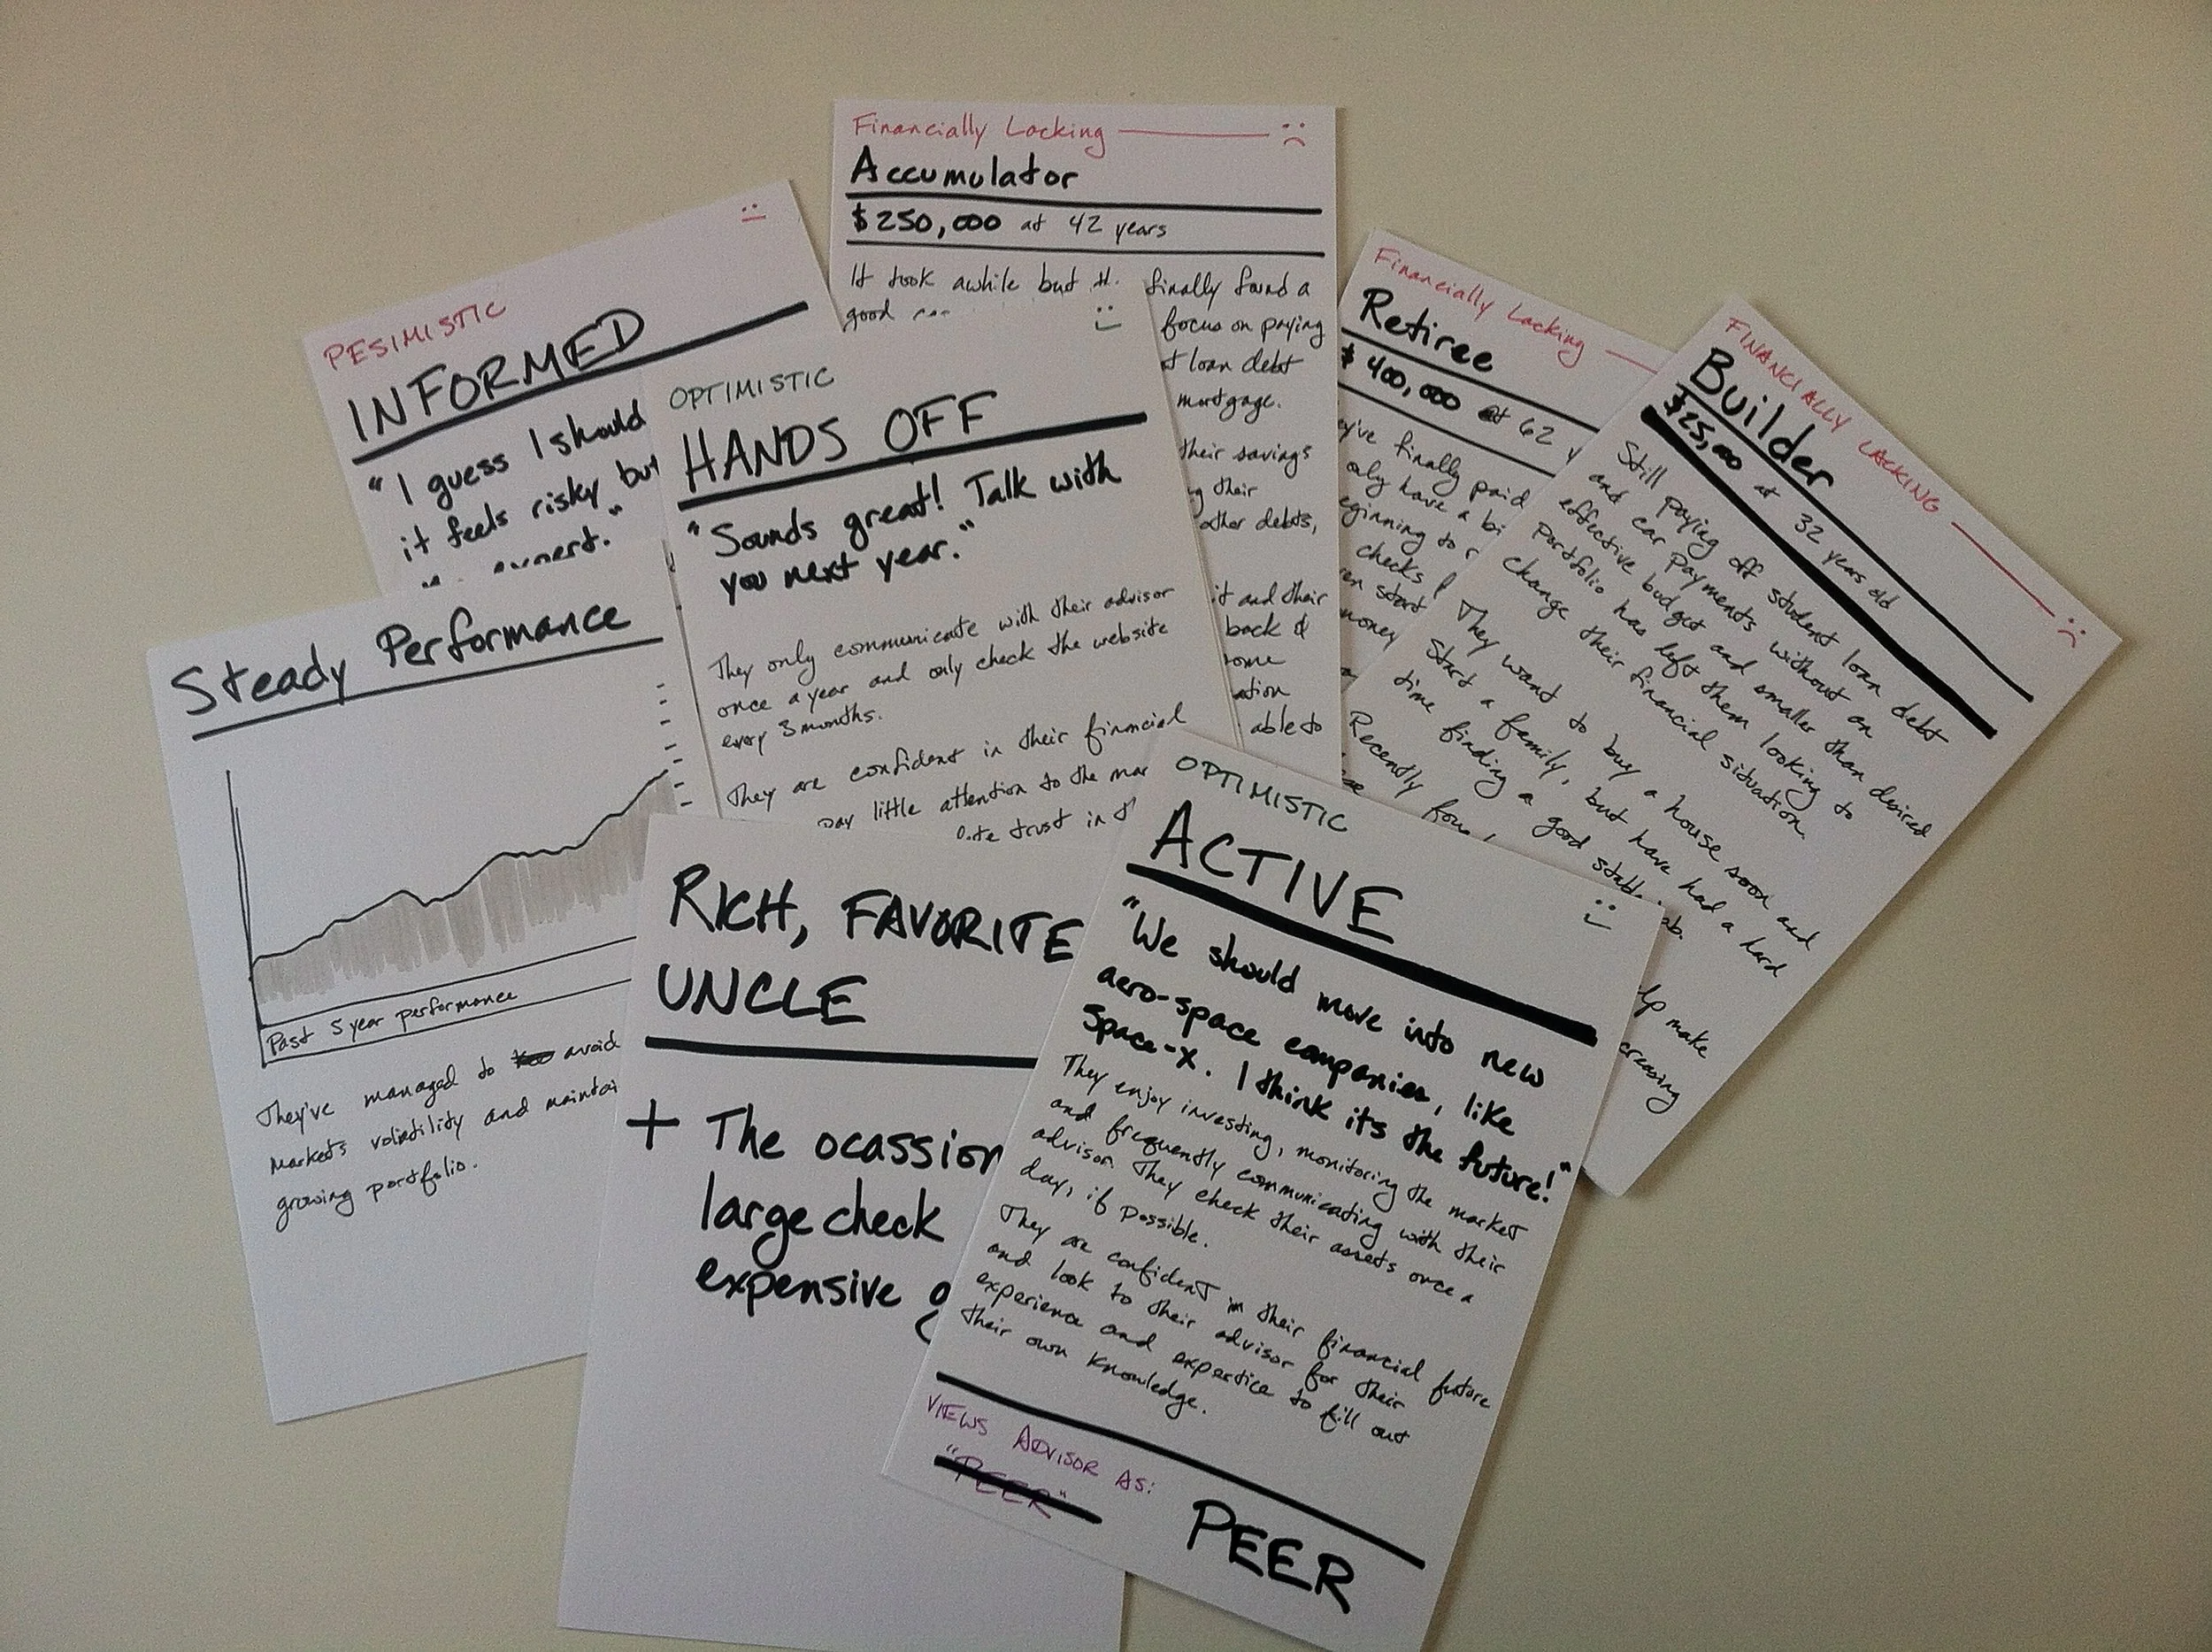 Financially Lacking
Accumulator
$250,000 at 42 years
It took awhile but th. finally found a
good
focus on paying
t loan debt
mortgage.
their savings
their
other debts,
it and their
back &
able to
PESIMISTIC
INFORMED
"I guess I should
it feels risky but
OPTIMISTIC
HANDS OFF
"Sounds great! Talk with
you next year."
They only communicate with their advisor
once a year and only check the website
every 3 months.
They are confident in their financial
pay little attention to the mar
trust in
Financially Lacking
Retiree
$400,000 at 62 y
finally paid
only have a bi
to
checks
start
money
FINANCIALLY LACKING
Builder
$25,000 at 32 years old
Still paying off student loan debt
and car payments without an
effective budget and smaller than desired
portfolio has left them looking to
change their financial situation.
They want to buy a house soon and
start a family, but have had a hard
time finding a good stable job.
Recently foun
lp make
creasing
Steady Performance
Past 5 year performance
They've managed to avoid
markets volitility and maintai
growing portfolio.
RICH, FAVORITE
UNCLE
+ The ocassion
large check
expensive g
OPTIMISTIC
ACTIVE
"We should move into new
aero-space companies, like
space-x. I think its the future!"
They enjoy investing, monitoring the market
and frequently communicating with their
advisor. They check their assets once a
day, if possible.
They are confident in their financial future
and look to their advisor for their
experience and expertice to fill out
their own knowledge.
VIEWS ADVISOR AS:
"PEER"
PEER